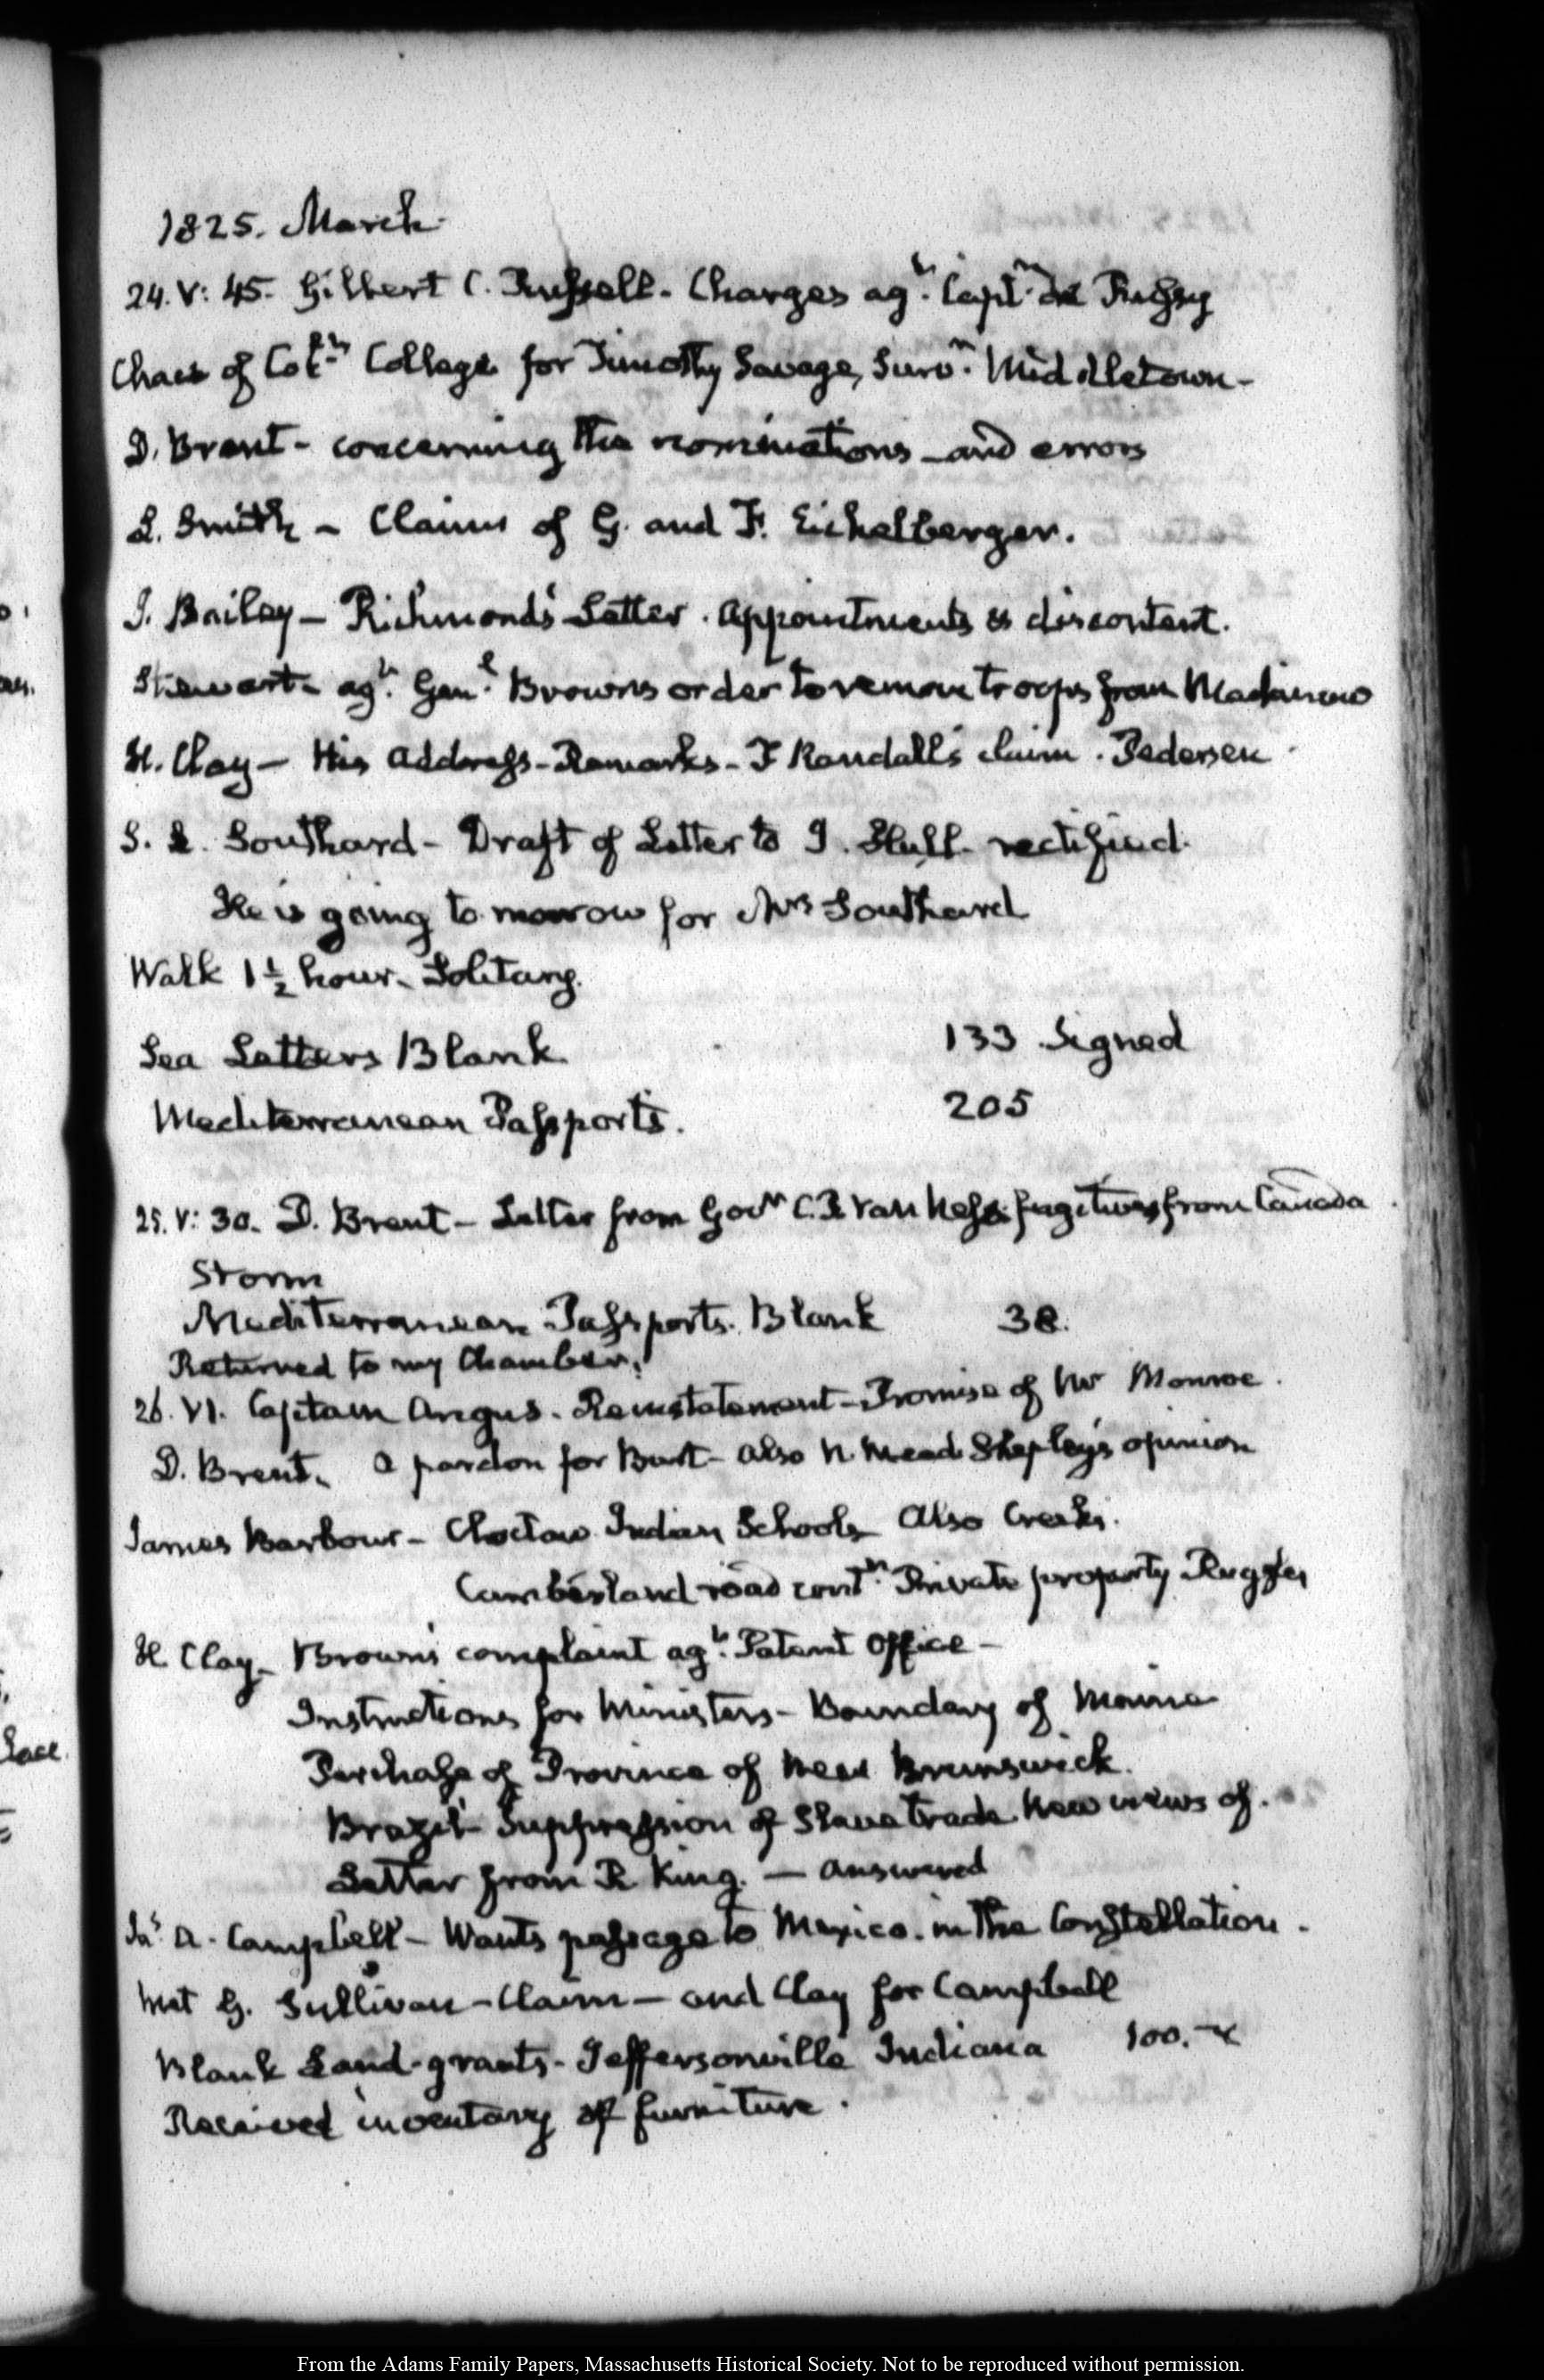 1825. March.
24. V: 45. Gilbert C. Russell. Charges agt. Captn. de Russy
Chas of Colln. College for Timothy Savage, Survr. Middletown-
D. Brent - concerning the nominations - and errors
S. Smith - Claims of G. and F. Eichelberger.
J. Bailey - Richmond's Letter. Appointments & discontent.
Stewart - agt. Genl. Browns order to remove troops from
H. Clay - His Address - Remarks - F Randall's claim. Pedersen
S. L. Southard - Draft of Letter to I. Hull rectified.
He is going to morrow for Mrs Southard
Walk 1 1/2 hour. Solitary.
Sea Letters Blank 133 Signed
Mediterranean Passports. 205
25. V: 30. D. Brent - Letter from Govr C. P. Van Ness fugitives from Canada
Storm
Mediterranean Passports. Blank 38.
Returned to my Chamber.
26. VI. Captain Angus. Reinstatement - Promise of Mr Monroe.
D. Brent. A pardon for Burt - Also N. Mead Shepley's opinion
James Barbour - Choctaw Indian Schools Also Creeks.
Cumberland road contn. Private property Ruggles
H. Clay - Brown's complaint agt. Patent Office -
Instructions for Ministers - Boundary of Maine
Purchase of Province of New Brunswick.
Brazil - Suppression of Slave trade New views of.
Letter from R King. - Answered
Jas A. Campbell - Wants passage to Mexico. in the Constellation.
Met G. Sullivan - Claim - and Clay for Campbell
Blank Land-grants - Jeffersonville Indiana 100.
Received inventory of furniture.
From the Adams Family Papers, Massachusetts Historical Society. Not to be reproduced without permission.